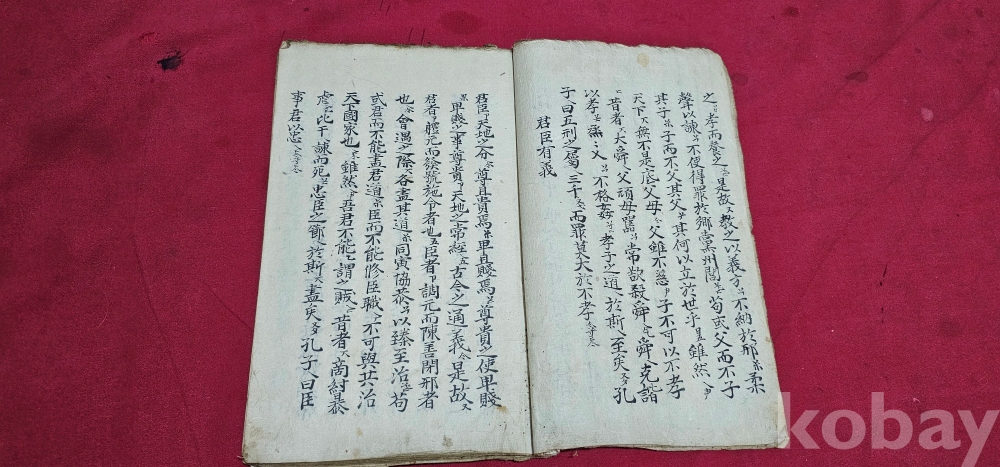 之孝而養之是故教之以義方不納於邪柔
聲以諫不使得罪於鄉黨州閭苟或父而不子
其子子而不父其父其何以立於世乎雖然
天下無不是底父母父雖不慈子不可以不孝
昔者大舜父頑母嚚常欲殺舜舜克諧
以孝烝烝乂不格姦孝子之道於斯至矣孔
子曰五刑之屬三千而罪莫大於不孝
君臣有義
君臣天地之分尊且貴焉卑且賤焉尊貴之使卑賤
卑賤之事尊貴天地之常經古今之通義是故
君者體元而發號施令者也臣者調元而陳善閉邪者
也會遇之際各盡其道同寅協恭以臻至治苟
或君而不能盡君道臣而不能修臣職不可與共治
天下國家也雖然吾君不能謂之賊昔者商紂暴
虐比干諫而死忠臣之節於斯盡矣孔子曰臣
事君以忠
kobay